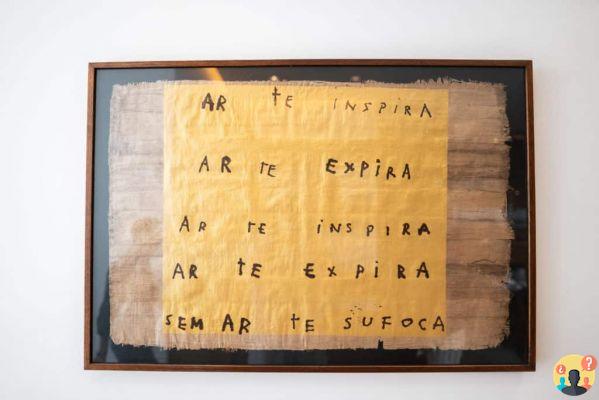 AR tE iNSPiRA
AR tE EXPiRA
AR tE iNSPiRA
AR tE EXPiRA
SEM AR tE SUFOCA
¿ ?